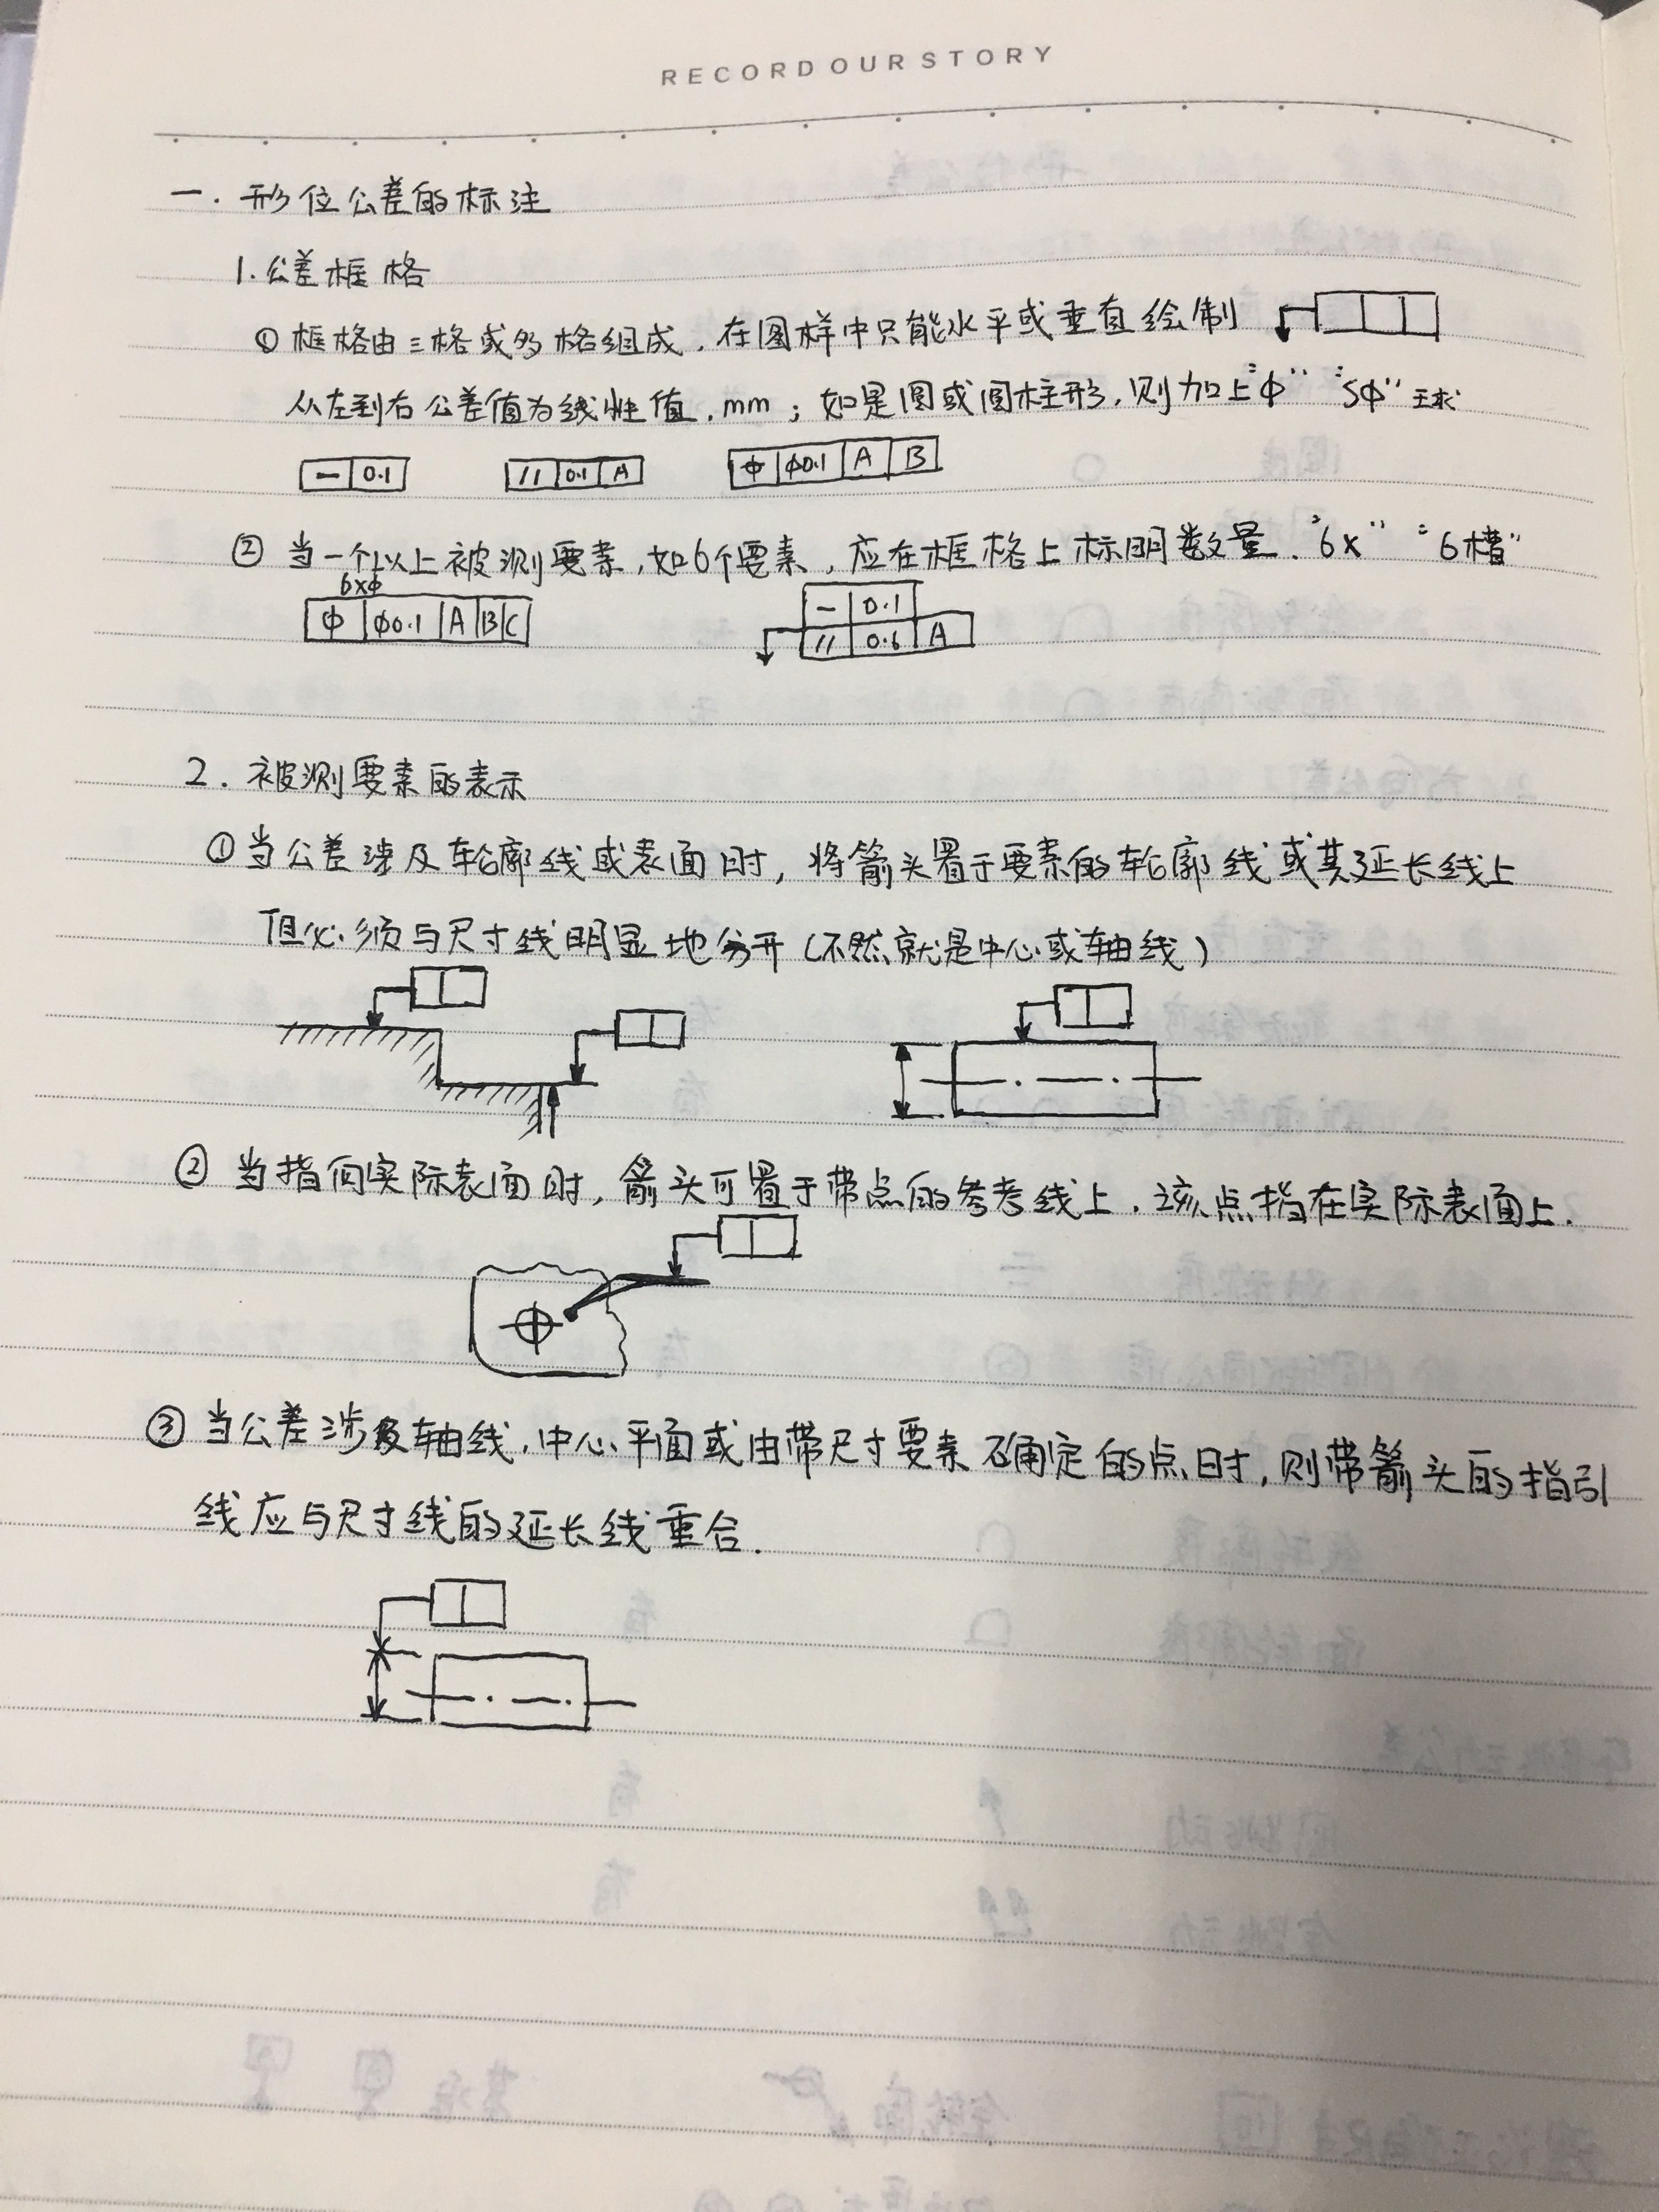 RECORD OUR STORY
一. 形位公差的标注
1. 公差框格
① 框格由三格或多格组成, 在图样中只能水平或垂直绘制
从左到右公差值为线性值, mm; 如是圆或圆柱形, 则加上"ϕ" "Sϕ"球
— 0.1 // 0.1 A ⌖ ϕ0.1 A B
② 当一个以上被测要素, 如6个要素, 应在框格上标明数量. "6x" "6槽"
6xϕ
⌖ ϕ0.1 A B C
— 0.1
// 0.6 A
2. 被测要素的表示
① 当公差涉及轮廓线或表面时, 将箭头置于要素的轮廓线或其延长线上
但必须与尺寸线明显地分开 (不然就是中心或轴线)
② 当指向实际表面时, 箭头可置于带点的参考线上, 该点指在实际表面上.
③ 当公差涉及轴线, 中心平面或由带尺寸要素确定的点时, 则带箭头的指引
线应与尺寸线的延长线重合.